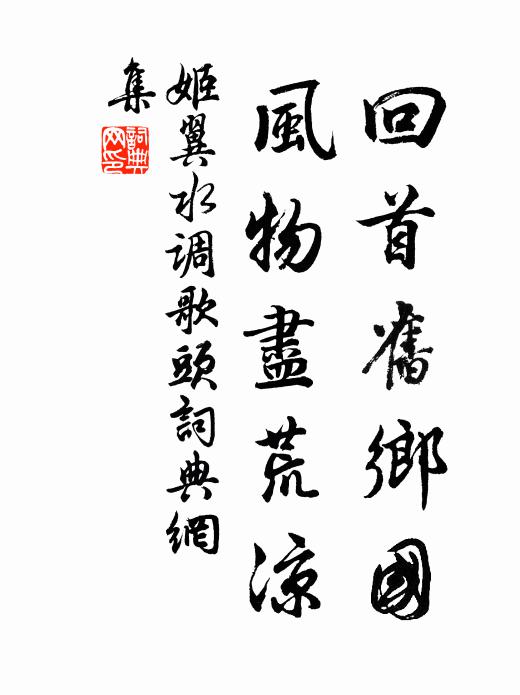 回首舊鄉國
風物盡荒涼
姬翼水調歌頭詞典網
集
詞典
网印